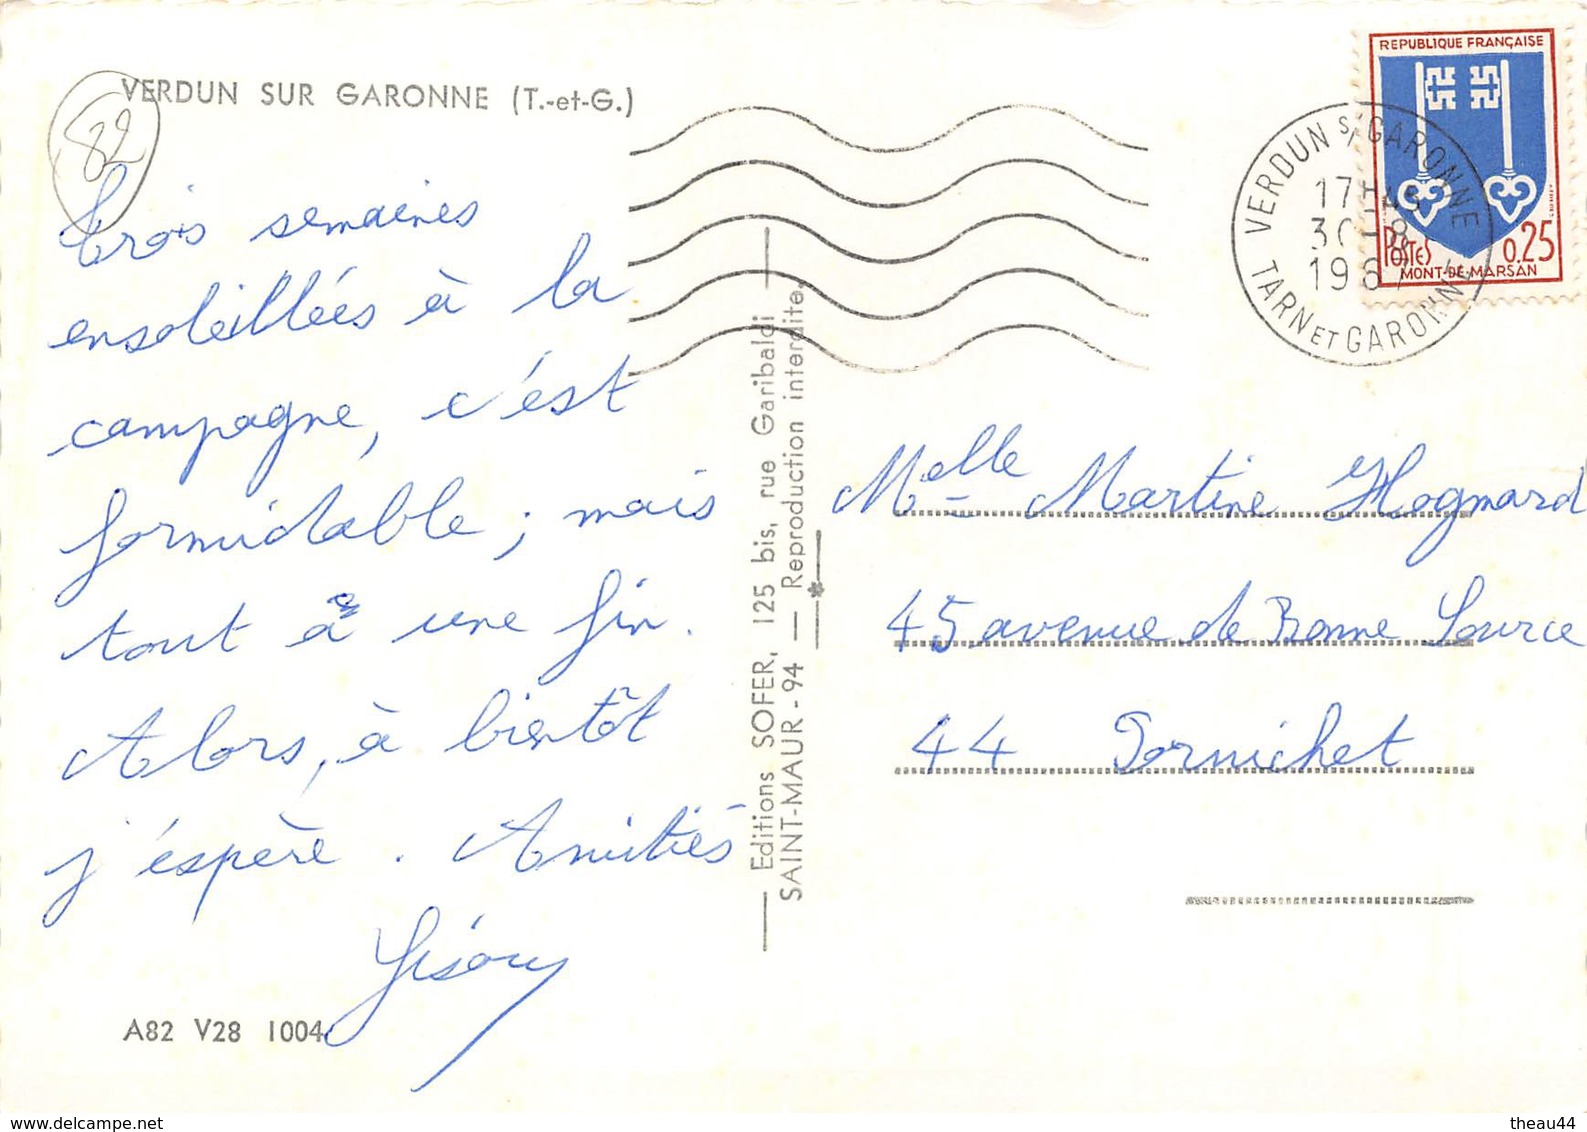 VERDUN SUR GARONNE (T.-et-G.)
82
trois semaines
ensoleillées à la
campagne, c'est
formidable ; mais
tout a une fin.
Alors, à bientôt
j'espère. Amitiés
A82 V28 1004
Editions SOFER, 125 bis, rue Garibaldi
SAINT-MAUR - 94 — Reproduction interdite.
REPUBLIQUE FRANÇAISE
POSTES 0.25
MONT-DE-MARSAN
VERDUN S/ GARONNE
17H
30-8
196
TARN ET GARONNE
Melle Martine Hognard
45 avenue de Bonne Source
44 Pornichet
www.delcampe.net
theau44